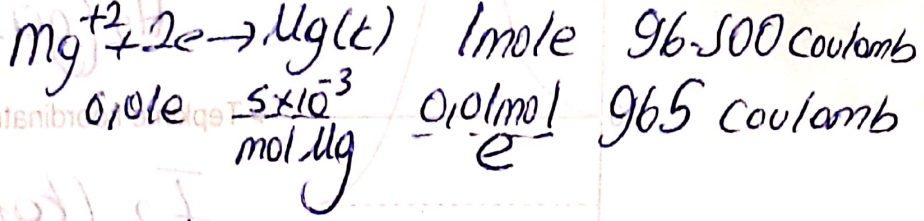 Mg⁺² + 2e → Mg(k) 1mole 96.500 Coulomb
0,01e 5x10⁻³ mol Mg 0,01mol e 965 Coulomb